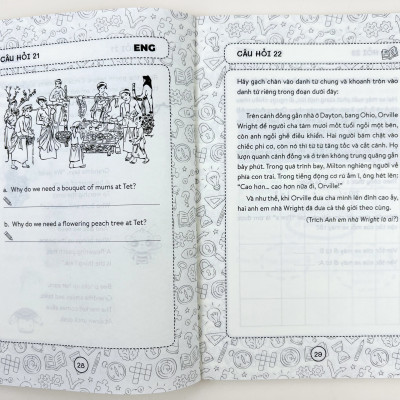 CÂU HỎI 21
ENG
a. Why do we need a bouquet of mums at Tet?
b. Why do we need a flowering peach tree at Tet?
28
CÂU HỎI 22
Hãy gạch chân vào danh từ chung và khoanh tròn vào
danh từ riêng trong đoạn dưới đây:
Trên cánh đồng gần nhà ở Dayton, bang Ohio, Orville
Wright để người cha tám mươi mốt tuổi ngồi một bên,
còn anh ngồi ghế điều khiển. Hai người bám chặt vào
chiếc phi cơ, còn nó thì từ từ tăng tốc và cất cánh. Họ
lượn quanh cánh đồng và ở trên không trung quãng gần
bảy phút. Trong quá trình bay, Milton nghiêng người về
phía con trai. Trong tiếng động cơ rù ầm ĩ, ông hét lên:
"Cao hơn... cao hơn nữa đi, Orville!"
Và như thế, khi Orville đưa cha mình lên đỉnh cao ấy,
hai anh em nhà Wright đã đưa cả thế giới theo cùng.
(Trích Anh em nhà Wright là ai?)
29